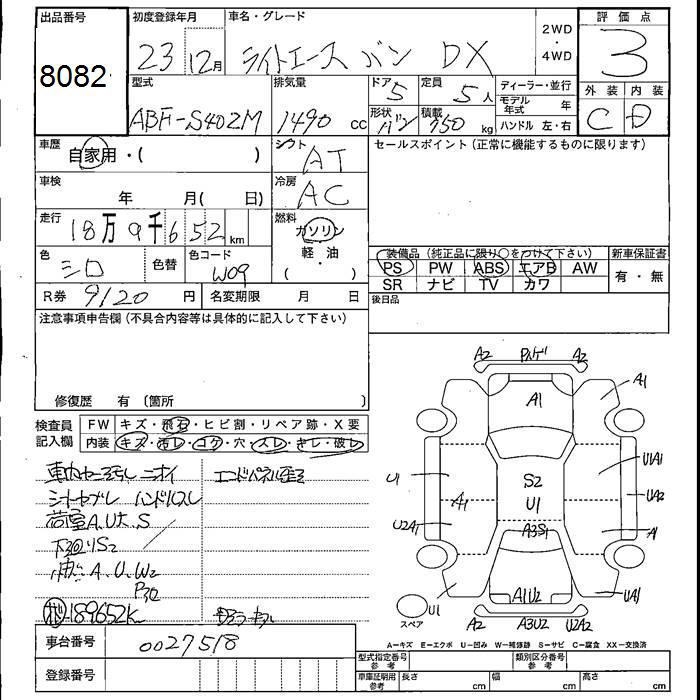 出品番号 初度登録年月 車名・グレード 評価点
8082 23年12月 ライトエース バン DX 2WD・4WD 3
型式 排気量 ドア 定員 ディーラー・並行 外装 内装
ABF-S402M 1490 cc 5 5人 モデル年式 年 C D
形状 バン 積載 750 kg ハンドル 左・右
車歴 自家用・( ) シフト AT セールスポイント(正常に機能するものに限ります)
車検 年 月( 日) 冷房 AC
走行 18万9千652km 燃料 ガソリン・軽油 ( )
色 シロ 色替 色コード W09
装備品(純正品に限り○をつけて下さい) 新車保証書
PS PW ABS エアB AW 有・無
SR ナビ TV カワ
R券 9120円 名変期限 月 日 後日品
注意事項申告欄(不具合内容等は具体的に記入して下さい)
修復歴 有〔箇所 〕
検査員記入欄 FW キズ・飛石・ヒビ割・リペア跡・X要
内装 キズ・汚レ・コゲ・穴・スレ・キレ・破レ
ニオイ
エンドパネル
荷室A.U大.S
下廻りS2
A.U.W2
P3
189652K
A2 A2
A1 A1
U1 S2 U1A1
A1 U1 UA2
U2A1 A3S1 A1
A1U2
U1 UA1
スペア A2 A3U2 U2A2
A=キズ E=エクボ U=凹み W=補修跡 S=サビ C=腐食 XX=交換済
車台番号 0027518
型式指定番号 参考 類別区分番号 参考
登録番号
車庫証明用 参考 長さ cm 幅 cm 高さ cm